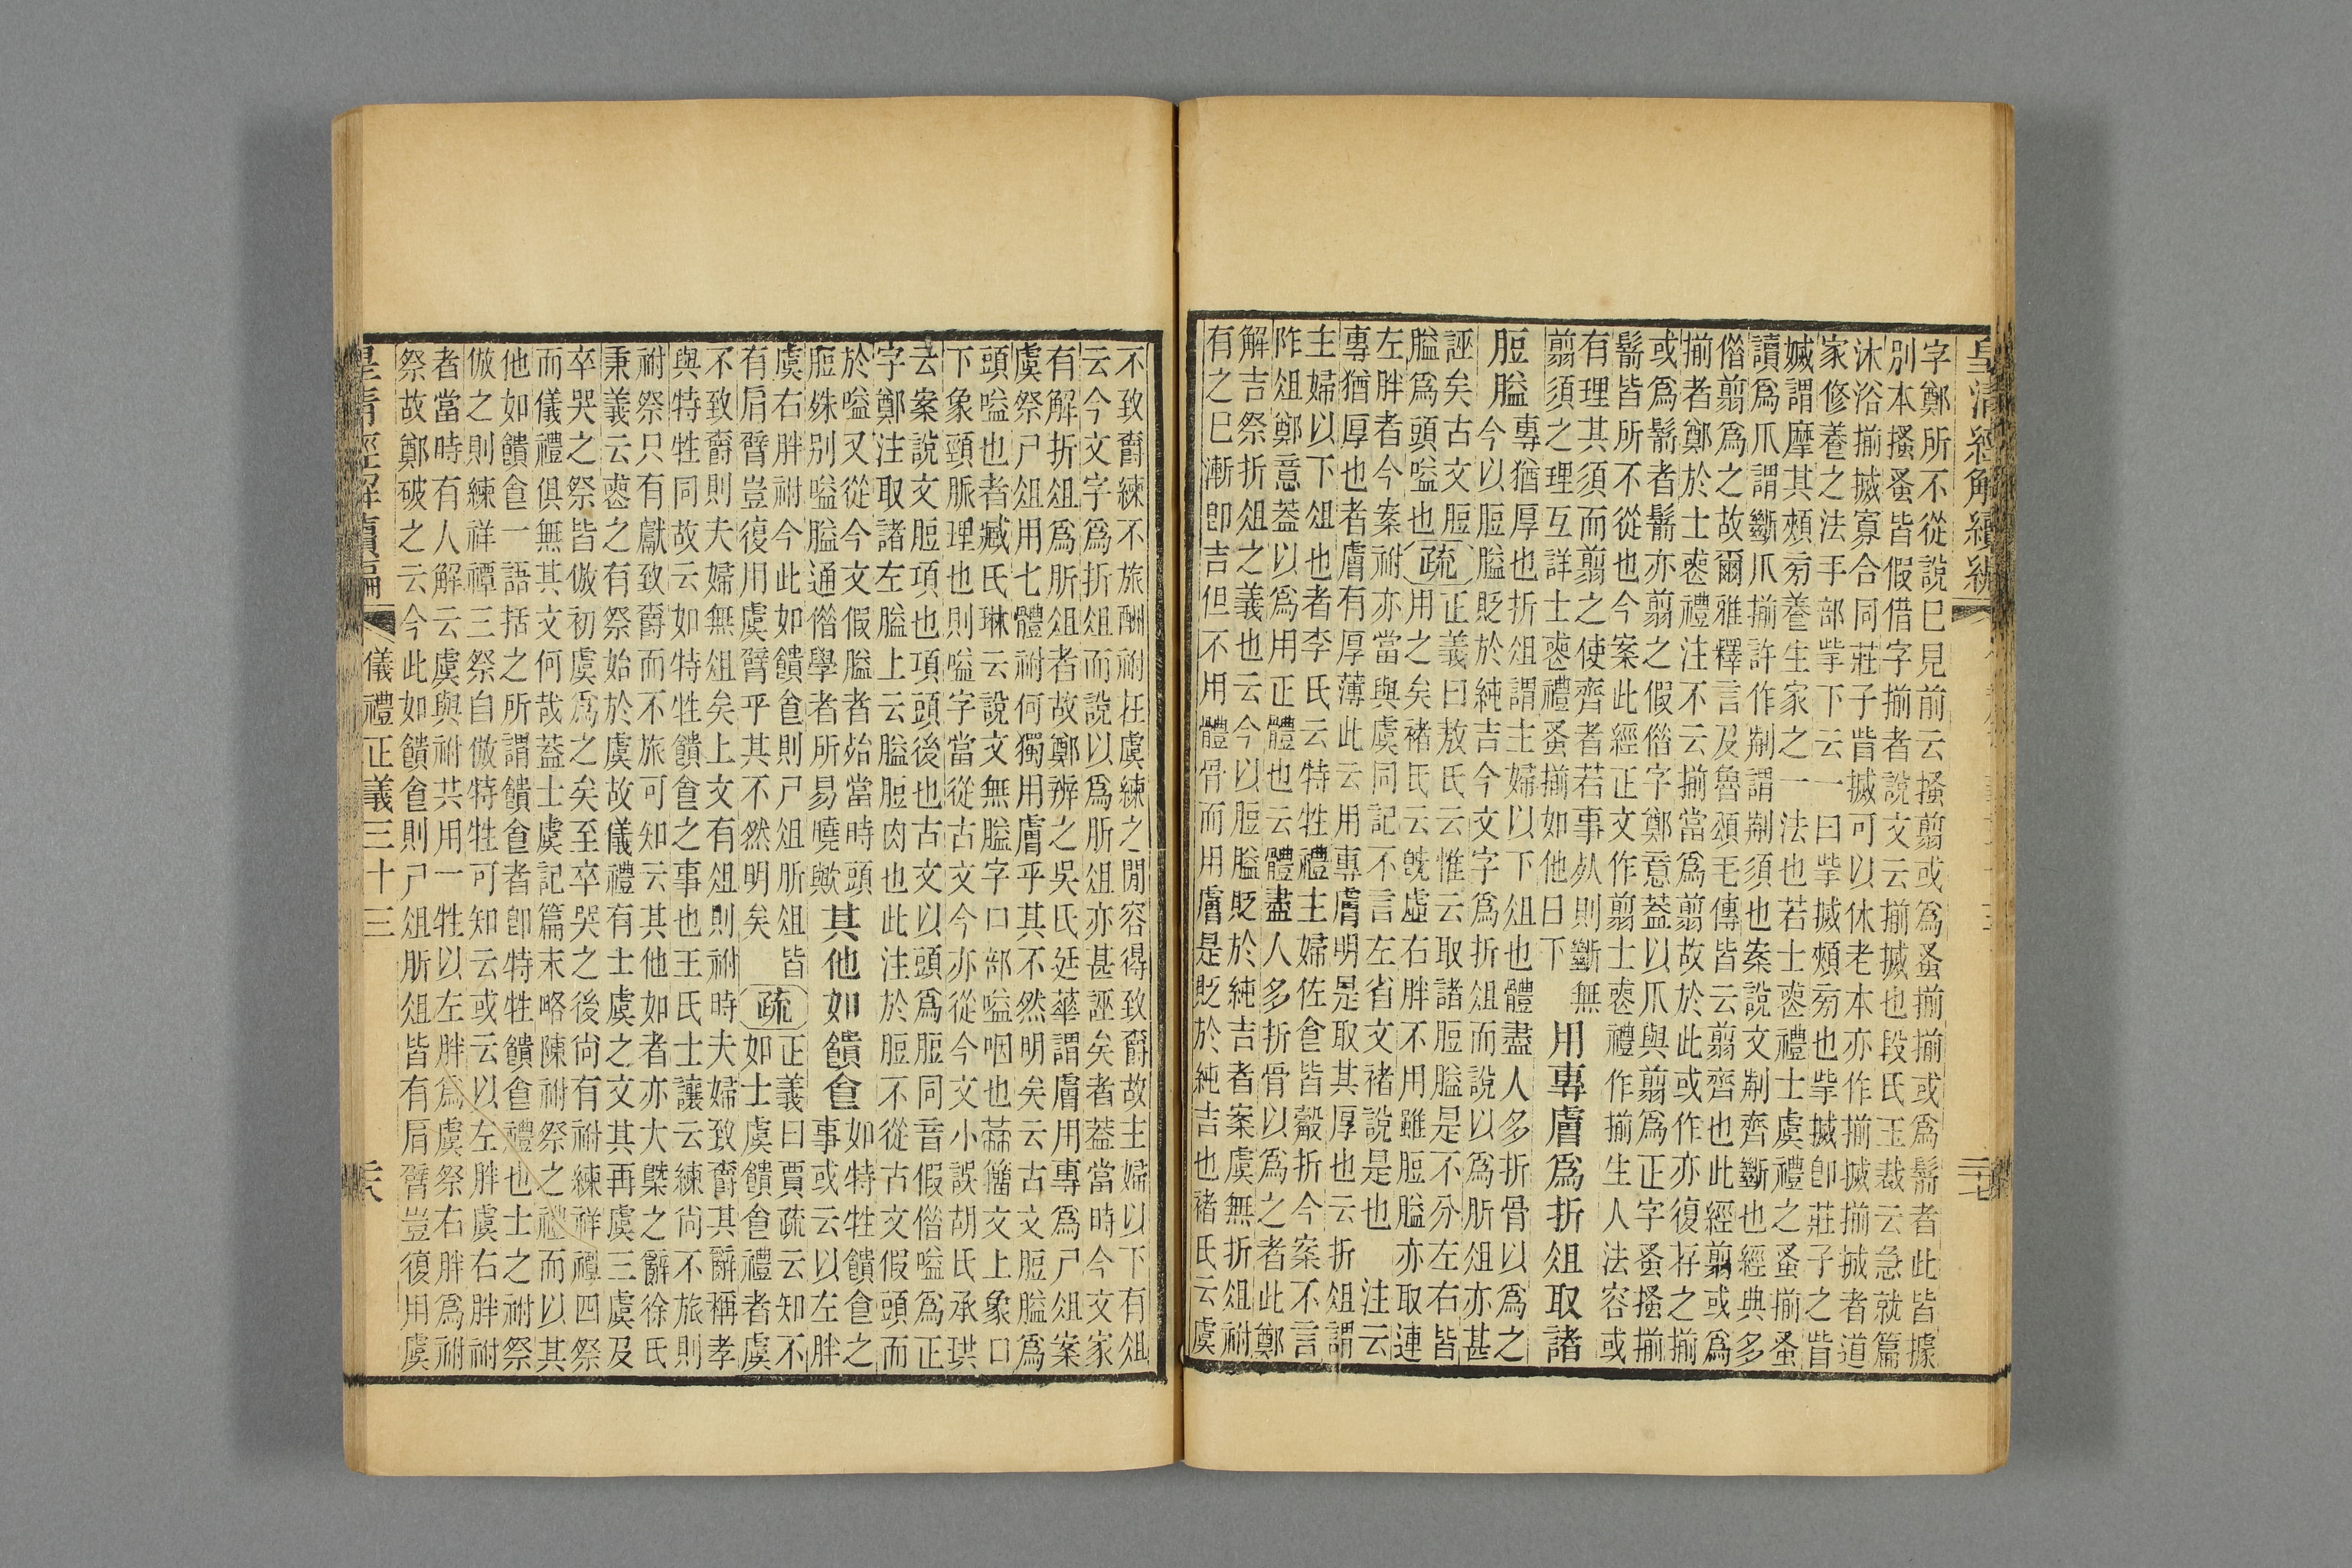 皇清經解續編
字鄭所不從說巳見前云搔翦或爲蚤揃揃或爲鬋者此皆據
別本搔蚤皆假借字揃者說文云揃搣也段氏玉裁云急就篇
沐浴揃搣寡合同莊子眥搣可以休老本亦作揃搣揃搣者道
家修養之法手部㧘下云一曰㧘搣頰旁也㧘搣卽莊子之眥
㓕謂摩其頰旁養生家之一法也若士喪禮士虞禮之蚤揃蚤
讀爲爪謂斷爪揃許作𠜶謂𠜶須也案說文𠜶齊斷也經典多
借翦爲之故爾雅釋言及魯頌毛傳皆云翦齊也此經翦或爲
揃者鄭於士喪禮注不云揃當爲翦故於此或作亦復存之揃
或爲鬋者鬋亦翦之假借字鄭意蓋以爪與翦爲正字蚤搔揃
鬋皆所不從也今案此經正文作翦士喪禮作揃生人法容或
有理其須而翦之使齊者若事死則斷無
翦須之理互詳士喪禮蚤揃如他日下
用專膚爲折俎取諸
脰膉
專猶厚也折俎謂主婦以下俎也體盡人多折骨以爲之
今以脰膉貶於純吉今文字爲折俎而說以爲肵俎亦甚
誣矣古文脰
膉爲頭嗌也
疏
正義曰敖氏云惟云取諸脰膉是不分左右皆
用之矣褚氏云旣虛右胖不用雖脰膉亦取連
左胖者今案祔亦當與虞同記不言左省文褚說是也　注云
專猶厚也者膚有厚薄此云用專膚明是取其厚也云折俎謂
主婦以下俎也者李氏云特牲禮主婦佐食皆觳折今案不言
阼俎鄭意蓋以爲用正體也云體盡人多折骨以爲之者此鄭
解吉祭折俎之義也云今以脰膉貶於純吉者案虞無折俎祔
有之巳漸卽吉但不用體骨而用膚是貶於純吉也褚氏云虞
不致爵練不旅酬祔在虞練之閒容得致爵故主婦以下有俎
云今文字爲折俎而說以爲肵俎亦甚誣矣者蓋當時今文家
有解折俎爲肵俎者故鄭辨之吳氏廷華謂膚用專爲尸俎案
虞祭尸俎用七體祔何獨用膚乎其不然明矣云古文脰膉爲
頭嗌也者臧氏琳云說文無膉字口部嗌咽也𦵯籒文上象口
下象頸脈理也則嗌字當從古文今亦從今文小誤胡氏承珙
云案說文脰項也項頭後也古文以頭爲脰同音假借嗌爲正
字鄭注取諸左膉上云膉脰肉也此注於脰不從古文假頭而
於嗌又從今文假膉者殆當時頭
脰殊別嗌膉通借學者所易曉歟
其他如饋食
如特牲饋食之
事或云以左胖
虞右胖祔今此如饋食則尸俎肵俎皆
有肩臂豈復用虞臂乎其不然明矣
疏
正義曰賈疏云知不
如士虞饋食禮者虞
不致爵則夫婦無俎矣上文有俎則祔時夫婦致爵其辭稱孝
與特牲同故云如特牲饋食之事也王氏士讓云練尙不旅則
祔祭只有獻致爵而不旅可知云其他如者亦大槩之辭徐氏
秉義云喪之有祭始於虞故儀禮有士虞之文其再虞三虞及
卒哭之祭皆倣初虞爲之矣至卒哭之後尙有祔練祥禫四祭
而儀禮俱無其文何哉蓋士虞記篇末略陳祔祭之禮而以其
他如饋食一語括之所謂饋食者卽特牲饋食禮也士之祔祭
倣之則練祥禫三祭自倣特牲可知云或云以左胖虞右胖祔
者當時有人解云虞與祔共用一牲以左胖爲虞祭右胖爲祔
祭故鄭破之云今此如饋食則尸俎肵俎皆有肩臂豈復用虞
皇清經解續編
儀禮正義三十三